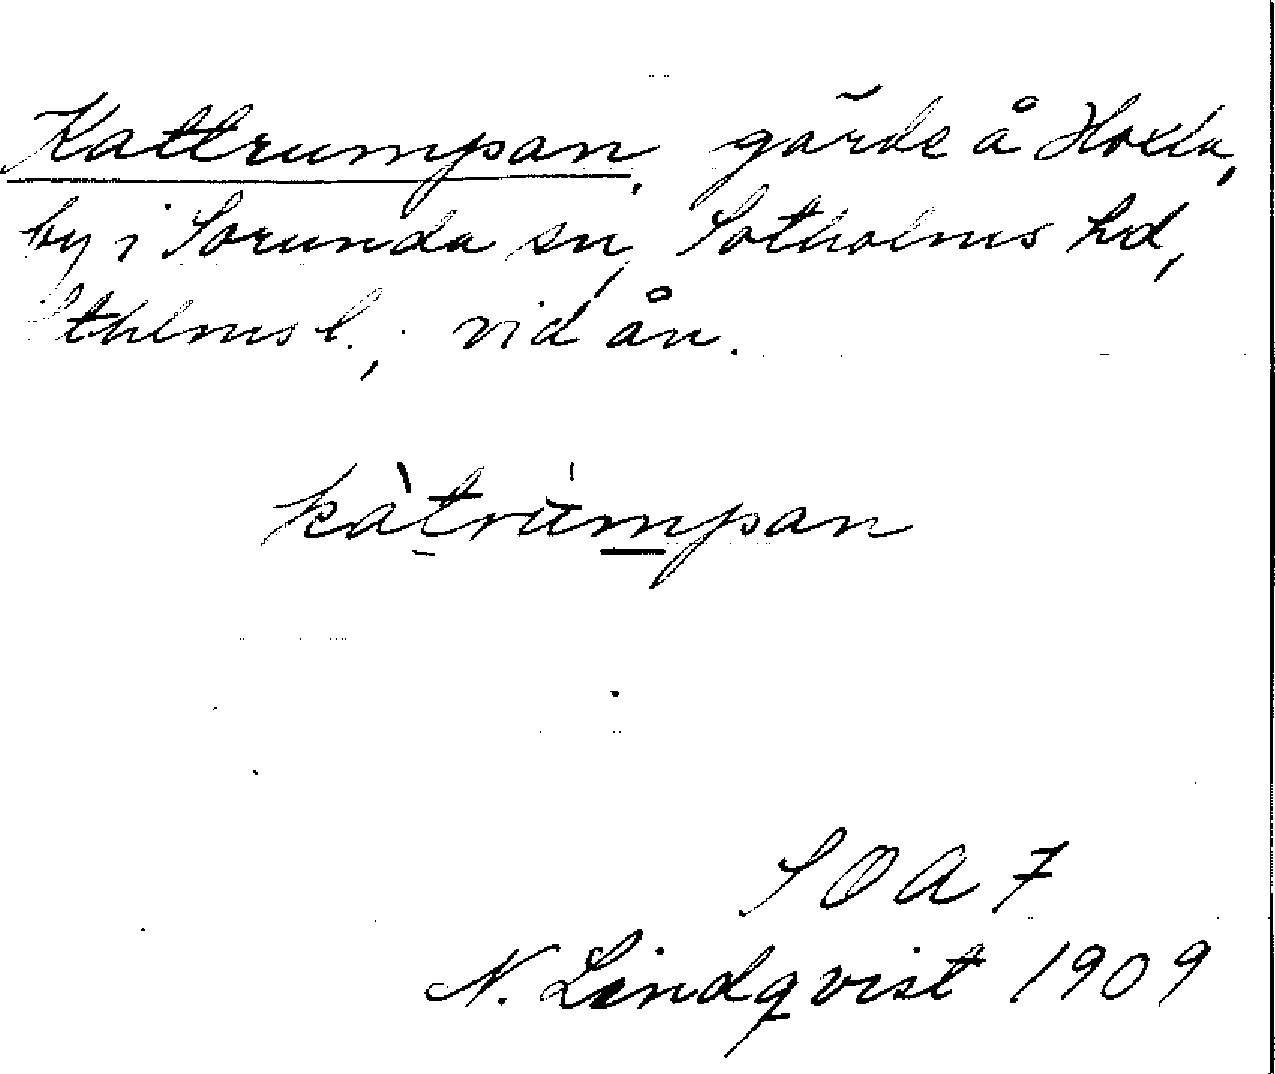 Kattrumpan, gärde å Hoxla,
by i Sorunda sn, Sotholms hd,
Sthlms l., vid ån.
kàtrúmpan
SOA 7
N. Lindqvist 1909